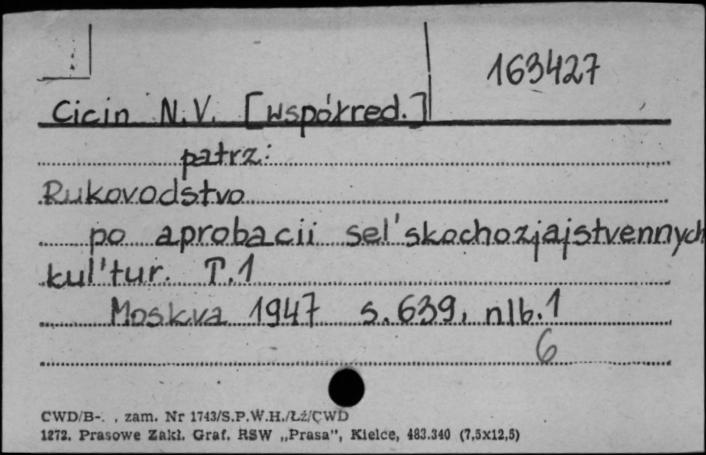 163427
Cicin N.V. [współred.]
patrz:
Rukovodstvo
po aprobacii sel'skochozjajstvennych
kul'tur. T.1
Moskva 1947 s.639, nlb.1
6
CWD/B-. , zam. Nr 1743/S.P.W.H./Łź/CWD
1272. Prasowe Zakł. Graf. RSW „Prasa", Kielce, 483.340 (7,5x12,5)